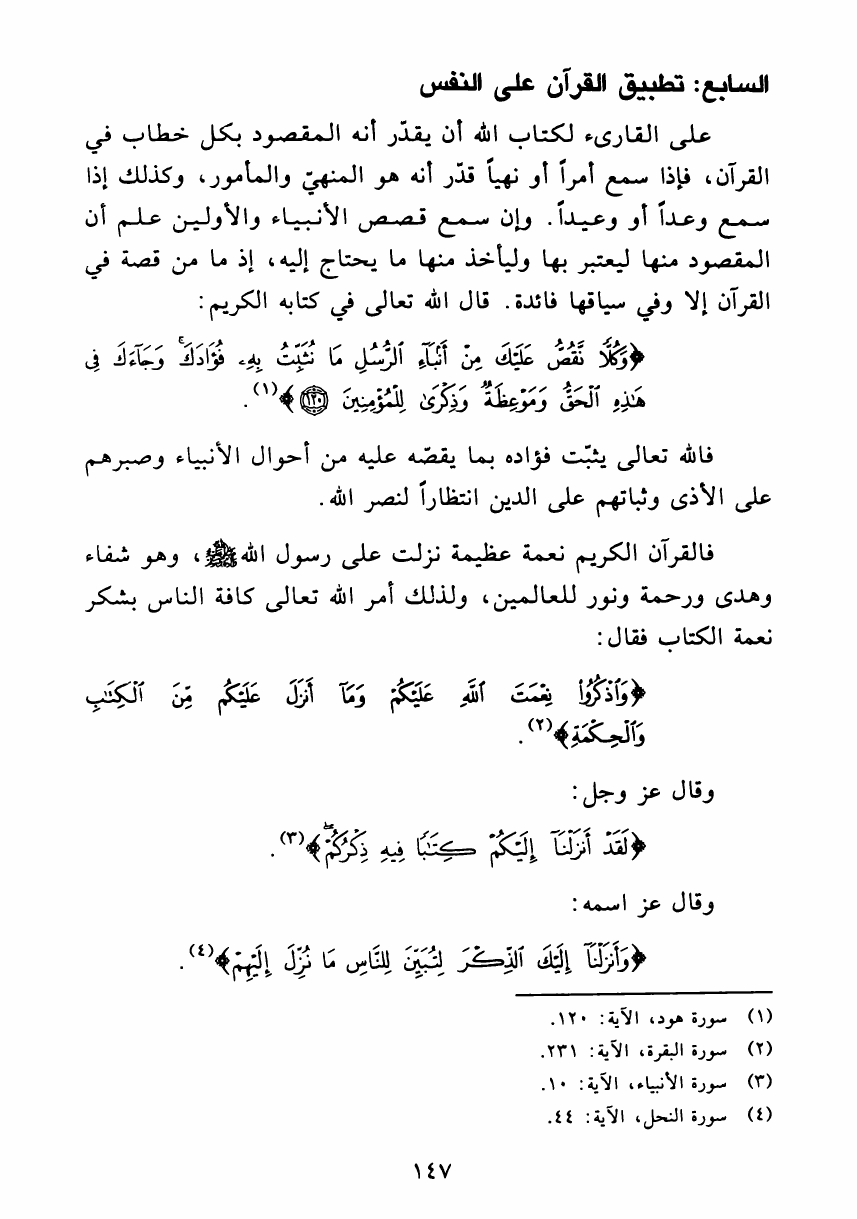 السابع: تطبيق القرآن على النفس
على القارىء لكتاب الله أن يقدّر أنه المقصود بكل خطاب في
القرآن، فإذا سمع أمراً أو نهياً قدّر أنه هو المنهيّ والمأمور، وكذلك إذا
سمع وعداً أو وعيداً. وإن سمع قصص الأنبياء والأولين علم أن
المقصود منها ليعتبر بها وليأخذ منها ما يحتاج إليه، إذ ما من قصة في
القرآن إلا وفي سياقها فائدة. قال الله تعالى في كتابه الكريم:
﴿وَكُلًّا نَّقُصُّ عَلَيْكَ مِنْ أَنۢبَآءِ ٱلرُّسُلِ مَا نُثَبِّتُ بِهِۦ فُؤَادَكَ ۚ وَجَآءَكَ فِى
هَـٰذِهِ ٱلْحَقُّ وَمَوْعِظَةٌ وَذِكْرَىٰ لِلْمُؤْمِنِينَ ١٢٠﴾(١).
فالله تعالى يثبّت فؤاده بما يقصّه عليه من أحوال الأنبياء وصبرهم
على الأذى وثباتهم على الدين انتظاراً لنصر الله.
فالقرآن الكريم نعمة عظيمة نزلت على رسول الله ﷺ، وهو شفاء
وهدى ورحمة ونور للعالمين، ولذلك أمر الله تعالى كافة الناس بشكر
نعمة الكتاب فقال:
﴿وَٱذْكُرُوا۟ نِعْمَتَ ٱللَّهِ عَلَيْكُمْ وَمَآ أَنزَلَ عَلَيْكُم مِّنَ ٱلْكِتَـٰبِ
وَٱلْحِكْمَةِ﴾(٢).
وقال عز وجل:
﴿لَقَدْ أَنزَلْنَآ إِلَيْكُمْ كِتَـٰبًا فِيهِ ذِكْرُكُمْ ۖ﴾(٣).
وقال عز اسمه:
﴿وَأَنزَلْنَآ إِلَيْكَ ٱلذِّكْرَ لِتُبَيِّنَ لِلنَّاسِ مَا نُزِّلَ إِلَيْهِمْ﴾(٤).
(١) سورة هود، الآية: ١٢٠.
(٢) سورة البقرة، الآية: ٢٣١.
(٣) سورة الأنبياء، الآية: ١٠.
(٤) سورة النحل، الآية: ٤٤.
١٤٧